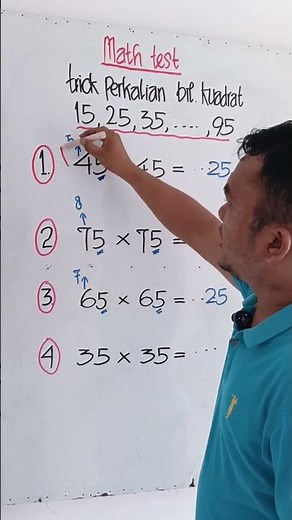 Math test
trick Perkalian bil. kuadrat
15, 25, 35, ....., 95
5
1. 45 45 = ..25
8
2 75 × 75 =
7
3 65 × 65 = ..25
4 35 × 35 = ...